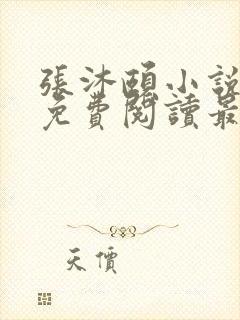 張沐頤小說
免費閱讀最
天價